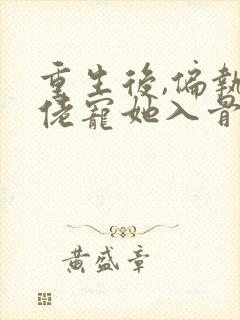 重生後,偏執
佬寵她入骨
黃盛章